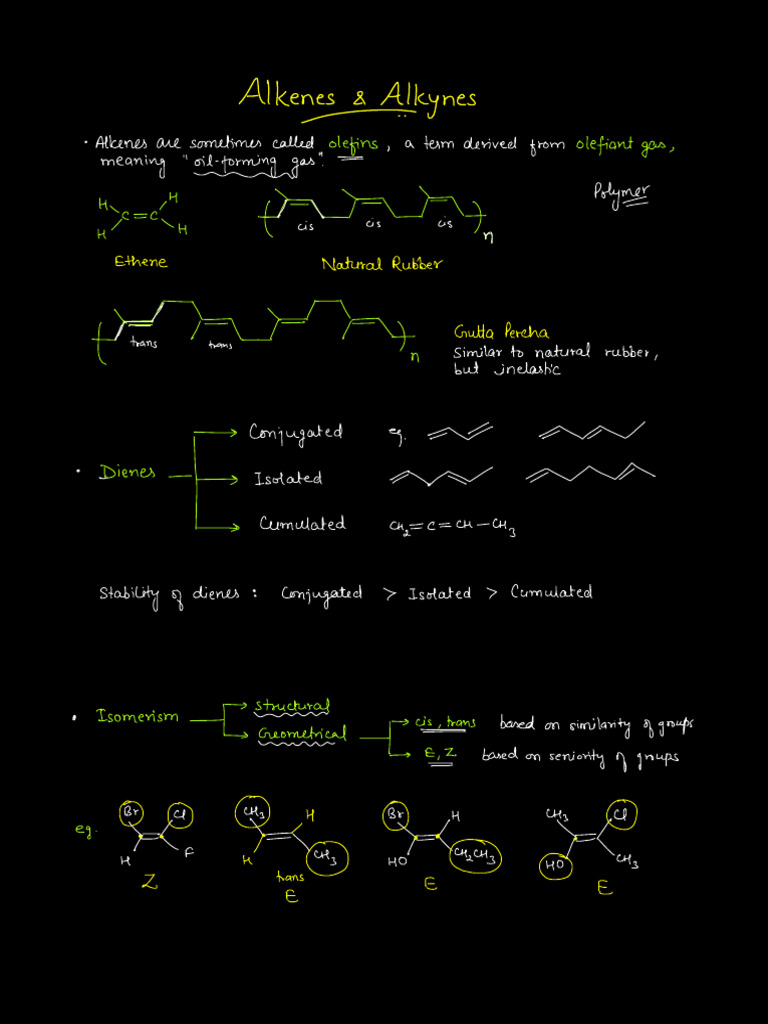 Alkenes & Alkynes
• Alkenes are sometimes called olefins, a term derived from olefiant gas,
meaning "oil-forming gas".
Polymer
H H
C=C
H H
cis cis cis
n
Ethene
Natural Rubber
trans trans
n
Gutta Percha
Similar to natural rubber,
but inelastic
Conjugated eg.
• Dienes
Isolated
Cumulated CH2=C=CH-CH3
Stability of dienes : Conjugated > Isolated > Cumulated
structural
• Isomerism
Geometrical
cis, trans based on similarity of groups
E, Z based on seniority of groups
eg.
Br Cl
H F
Z
CH3 H
H CH3
trans
E
Br H
HO CH2CH3
E
CH3 Cl
HO CH3
E